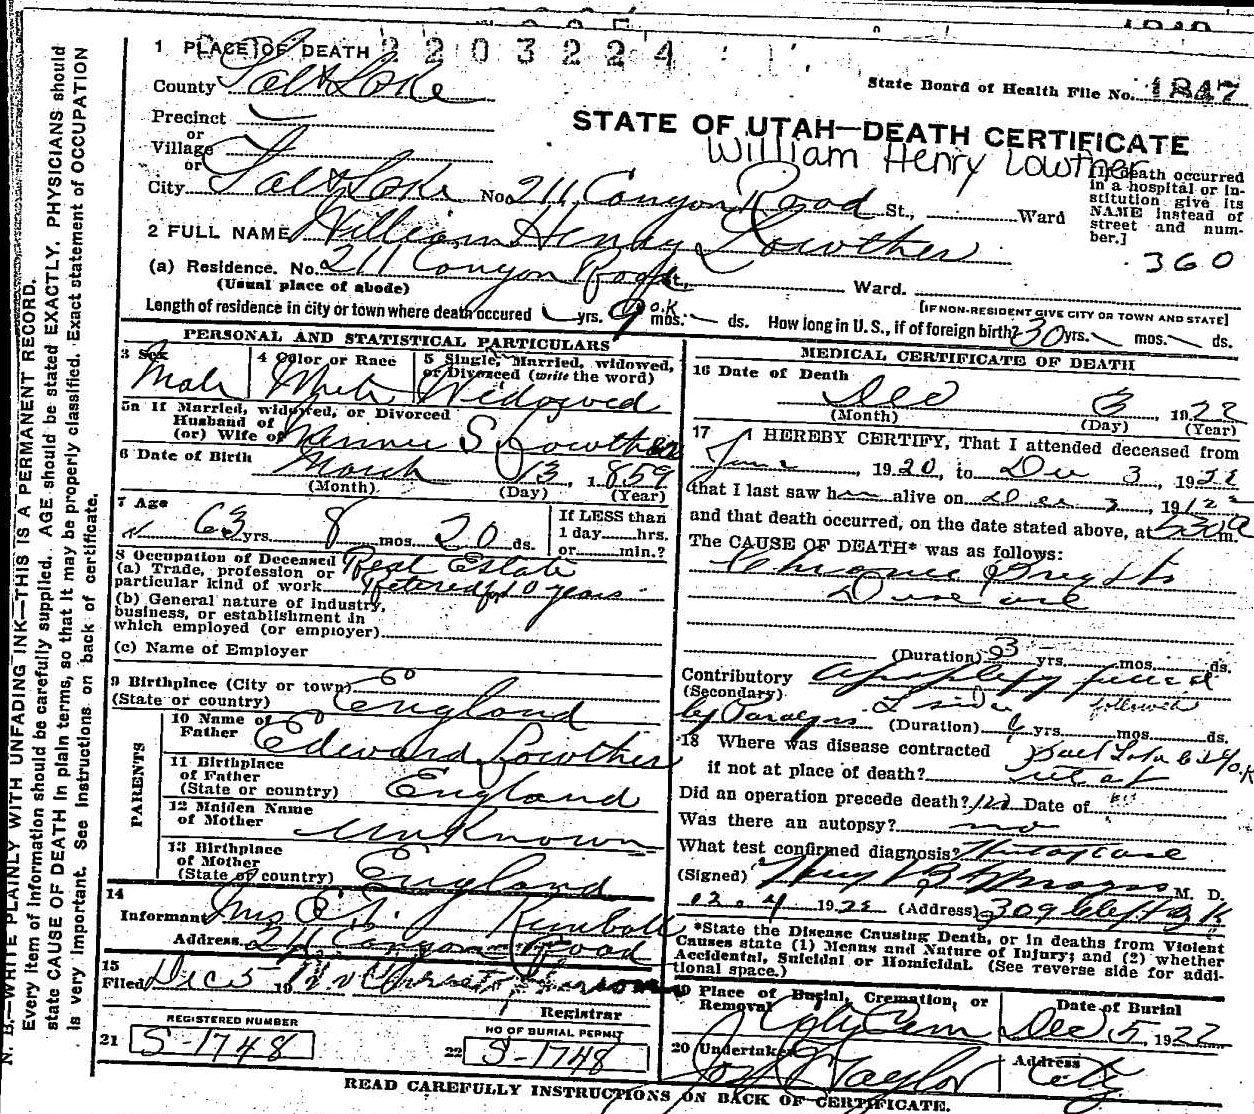 1 PLACE OF DEATH 2203224
County Salt Lake
State Board of Health File No. 1847
Precinct
or
Village
or
STATE OF UTAH—DEATH CERTIFICATE
William Henry Lowther
City Salt Lake No. 211 Canyon Road St., Ward
[If death occurred
in a hospital or in-
stitution give its
NAME instead of
street and num-
ber.]
360
2 FULL NAME William Henry Lowther
(a) Residence. No. 211 Canyon Road St., Ward.
(Usual place of abode)
[IF NON-RESIDENT GIVE CITY OR TOWN AND STATE]
Length of residence in city or town where death occured yrs. 9 mos. ds. How long in U.S., if of foreign birth? 30 yrs. mos. ds.
O.K
PERSONAL AND STATISTICAL PARTICULARS
3 Sex Male
4 Color or Race White
5 Single, Married, widowed,
or Divorced (write the word)
Widowed
5a If Married, widowed, or Divorced
Husband of
(or) Wife of S Lowther
6 Date of Birth March 13, 1859
(Month) (Day) (Year)
7 Age 63 yrs. 8 mos. 20 ds.
If LESS than
1 day hrs.
or min.?
8 Occupation of Deceased
(a) Trade, profession or
particular kind of work Real Estate
Retired for 10 years
(b) General nature of Industry,
business, or establishment in
which employed (or employer)
(c) Name of Employer
9 Birthplace (City or town)
(State or country) England
PARENTS
10 Name of
Father Edward Lowther
11 Birthplace
of Father
(State or country) England
12 Maiden Name
of Mother Unknown
13 Birthplace
of Mother
(State or country) England
14
Informant Mrs Kimball
Address 211 Canyon Road
15
Filed Dec 5 19
Registrar
REGISTERED NUMBER
21 S-1748
NO OF BURIAL PERMIT
22 S-1748
MEDICAL CERTIFICATE OF DEATH
16 Date of Death
Dec 3, 1922
(Month) (Day) (Year)
17 I HEREBY CERTIFY, That I attended deceased from
June, 1920, to Dec 3, 1922
that I last saw him alive on Dec 3, 1922
and that death occurred, on the date stated above, at 530 a m.
The CAUSE OF DEATH* was as follows:
Chronic Brights
Disease
(Duration) 3 yrs. mos. ds.
Contributory Apoplexy
(Secondary) followed
by Paralysis (Duration) yrs. mos. ds.
18 Where was disease contracted
if not at place of death? Salt Lake City
O.K
Utah
Did an operation precede death? no Date of
Was there an autopsy? no
What test confirmed diagnosis?
(Signed) M. D.
12-4 1922 (Address) 309
*State the Disease Causing Death, or in deaths from Violent
Causes state (1) Means and Nature of Injury; and (2) whether
Accidental, Suicidal or Homicidal. (See reverse side for addi-
tional space.)
19 Place of Burial, Cremation, or
Removal City Cem
Date of Burial
Dec 5, 1922
20 Undertaker Jos Taylor
Address City
READ CAREFULLY INSTRUCTIONS ON BACK OF CERTIFICATE.
N. B.—WRITE PLAINLY WITH UNFADING INK—THIS IS A PERMANENT RECORD.
Every item of information should be carefully supplied. AGE should be stated EXACTLY. PHYSICIANS should
state CAUSE OF DEATH in plain terms, so that it may be properly classified. Exact statement of OCCUPATION
is very important. See Instructions on back of certificate.